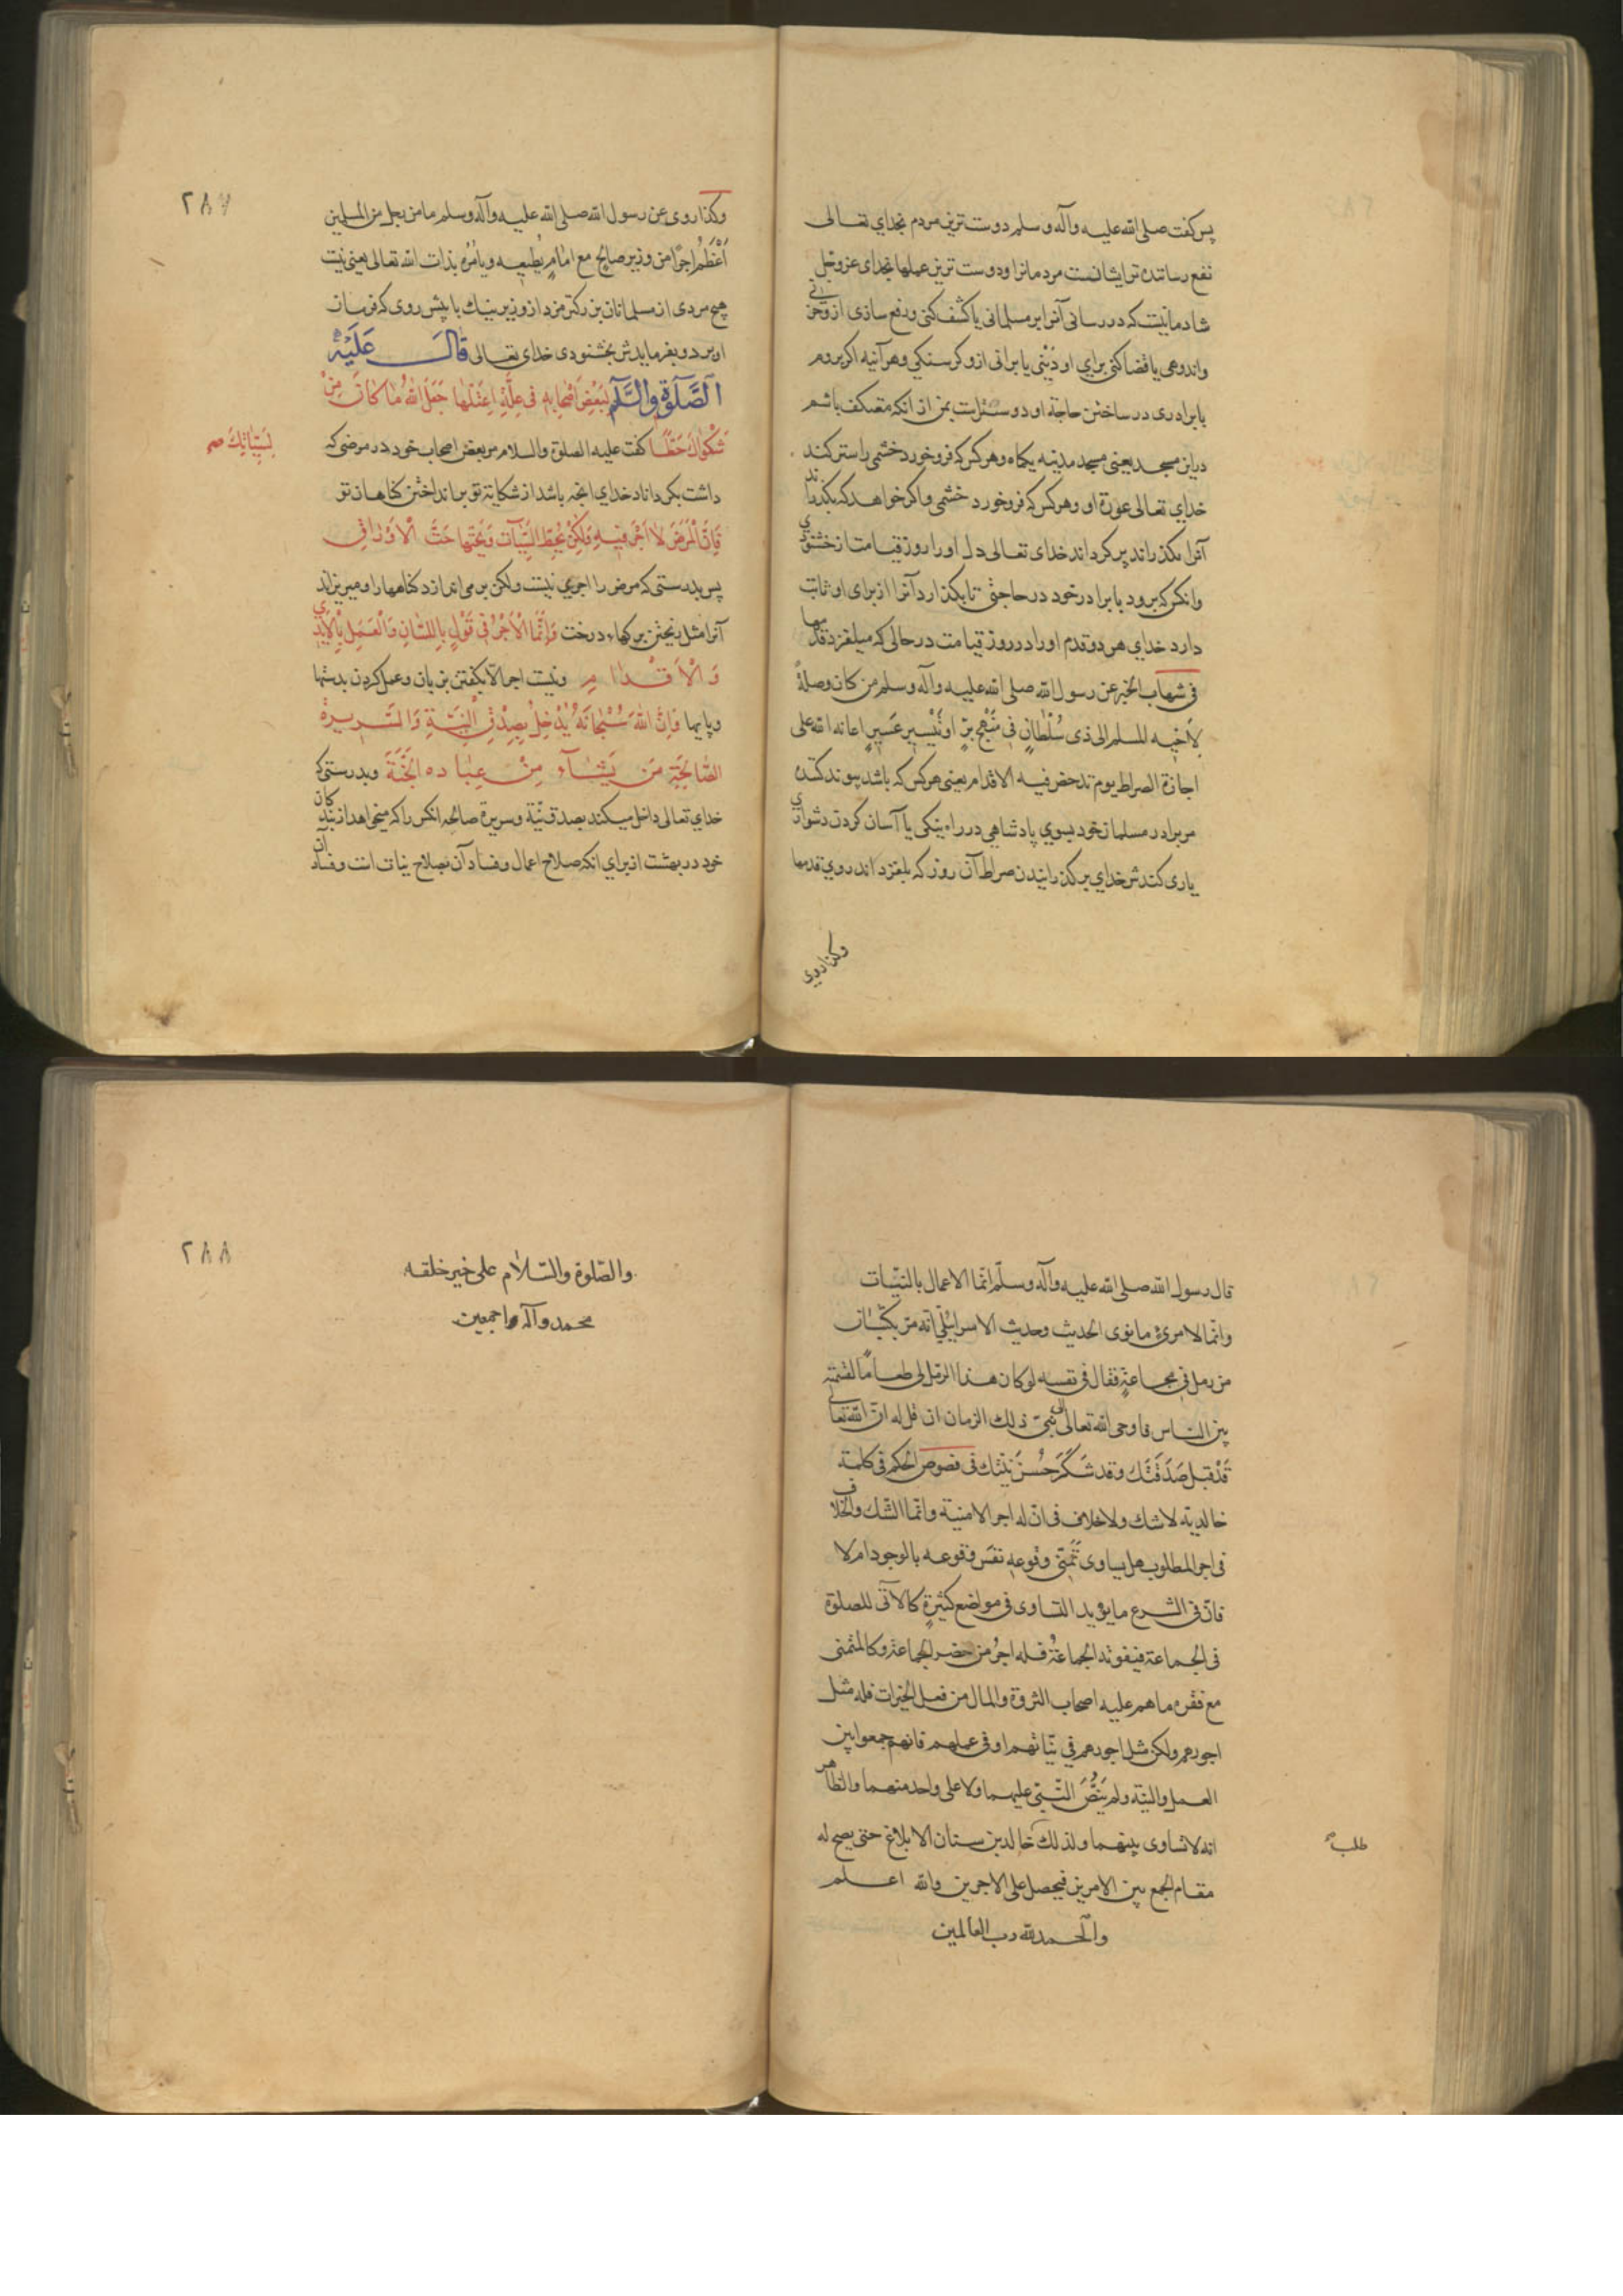 پس کفت صلی الله علیه وآله وسلم دوست ترین مردم بخدای تعالی
نفع رساننده ترایشانست مردمانرا ودوست ترین عملها بخدای عزوجل
شادمانیست که در رسانی آنرا بر مسلمانی یا کشف کنی ودفع سازی ازو حزنی
واندوهی یا قضا کنی برای او دَیْنی یا برانی ازو کرسنکی وهرآنیه اکر بروم
با برادری در ساختن حاجة او دوسترست بمن از انکه معتکف باشم
دراین مسجد یعنی مسجد مدینه یکماه وهرکس که فرو خورد خشمی را ستر کند
خدای تعالی عورة او وهرکس که فرو خورد خشمی واکر خواهد که بکذراند
آنرا بکذراند پر کرداند خدای تعالی دل اورا روز قیامت از خشنودی
وانکس که برود با برادر خود در حاجتی تا بکذارد آنرا از برای او ثابت
دارد خدای هر دو قدم اورا در روز قیامت در حالی که میلغزد قدمها
فی شهاب الخبر عن رسول الله صلی الله علیه وآله وسلم من کان وصلةً
لِاَخیه المسلم الی ذی سُلْطانٍ فی مَنْهَجِ بِرٍّ او تَیْسِیرِ عَسِیرٍ اعانه الله علی
اجازة الصراط یوم تدحض فیه الاقدام یعنی هرکس که باشد پیوند کننده
مر برادر مسلمان خود بسوی پادشاهی در راه نیکی یا آسان کردن دشواری
یاری کندش خدای بر کذرانیدن صراط آن روز که بلغزد اندروی قدمها
وکذا روی
٢٨٧
وکذا روی عن رسول الله صلی الله علیه وآله وسلم ما من رجل من المسلمین
اَعْظَمُ اجرًا من وزیر صالح مع امامٍ یُطیعه ویأمُرُه بذات الله تعالی یعنی نیست
هیچ مردی از مسلمانان بزرکتر مزد از وزیر نیك با پیش روی که فرمان
او برد وبفرمایدش بخشنودی خدای تعالی قَالَ عَلَیْهِ
الصَّلَوةُ وَالسَّلَامُ لِبَعْضِ اَصْحَابِهِ فی عِلَّةٍ اِعْتَلَّهَا جَعَلَ اللهُ مَا کَانَ مِنْ
شَکْوَاكَ حَطًّا کفت علیه الصلوة والسلام مر بعض اصحاب خود در مرضی که
لِسَیِّئَاتِكَ صح
داشت بکرداناد خدای انچه باشد از شکایة تو برانداختن کناهان تو
فَاِنَّ الْمَرَضَ لَا اَجْرَ فِیهِ وَلَکِنْ یَحُطُّ السَّیِّئَاتِ وَیَحُتُّهَا حَتَّ الْاَوْرَاقِ
پس بدرستی که مرض را اجری نیست ولکن بر می اندازد کناهها را ومیریزاند
آنرا مثل ریختن برکهاء درخت وَاِنَّمَا الْاَجْرُ فی الْقَوْلِ بِاللِّسَانِ وَالْعَمَلِ بِالْاَیْدِی
وَالْاَقْدَامِ ونیست اجر الا بکفتن بزبان وعمل کردن بدستها
وپایها وَاِنَّ اللهَ سُبْحَانَهُ یُدْخِلُ بِصِدْقِ النِّیَّةِ وَالسَّرِیرَةِ
الصَّالِحَةِ مَنْ یَشَاءُ مِنْ عِبَادِهِ الْجَنَّةَ وبدرستی که
خدای تعالی داخل میکند بصدق نیّة وسریرة صالحه انکس را که میخواهد از بندکان
خود در بهشت از برای انکه صلاح اعمال وفساد آن بصلاح نیات است وفساد آن
قال رسول الله صلی الله علیه وآله وسلّم انّما الاعمال بالنیّات
وانّما لامرئ ما نوی الحدیث وحدیث الاسرائیلی انّه مرّ بکثبان
من رمل فی مجاعةٍ فقال فی نفسه لو کان هذا الرمل لی طعاماً لقسمته
بین الناس فاوحی الله تعالی الی نبیّ ذلك الزمان ان قل له ان الله تعالی
قَدْ قبل صَدَقَتَك وقد شَکَرَ حُسْنَ نیّتك فی فصوص الحکم فی کلمة
خالدیّة لا شك ولا خلاف فی انّ له اجر الامنیّة وانّما الشك والخلاف
فی اجر المطلوب هل یساوی تمنّی وقوعه نفس وقوعه بالوجود ام لا
فانّ فی الشرع ما یؤید التساوی فی مواضع کثیرةٍ کالآتی للصلوة
فی الجماعة فیفوته الجماعةُ فله اجرُ من حضر الجماعة وکالمتمنی
مع فقره ما هم علیه اصحاب الثروة والمال من فعل الخیرات فله مثل
اجورهم ولکن مثل اجورهم فی نیّاتهم او فی عملهم فانهم جمعوا بین
العمل والنیّة ولم یَنُصَّ النّبیّ علیهما ولا علی واحد منهما والظاهر
انه لا تساوی بینهما ولذلك خالد بن سنان الابلاغ حتی یصح له
طلب
مقام الجمع بین الامرین فیحصل علی الاجرین والله اعلم
والحمد لله رب العالمین
٢٨٨
والصّلوة والسّلام علی خیر خلقه
محمد وآله اجمعین